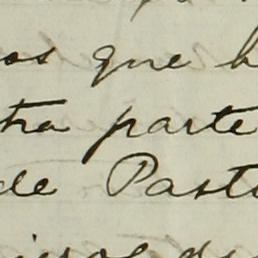 os que
tra parte
de Past